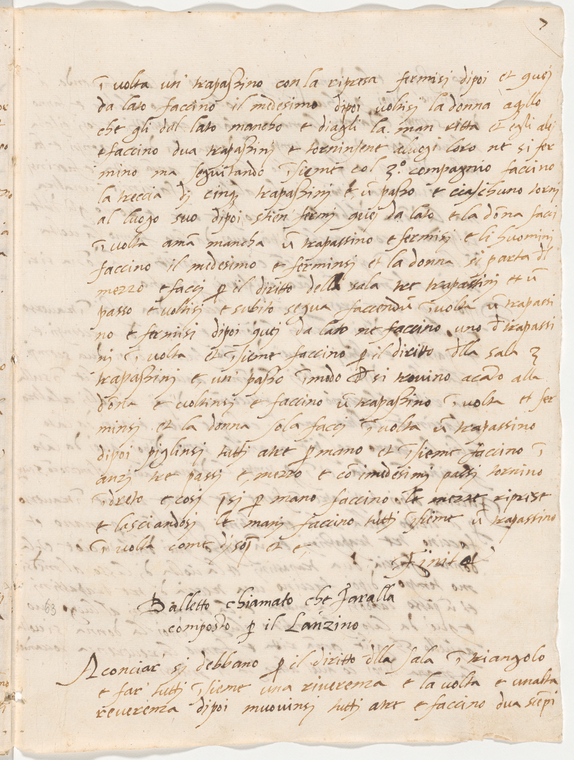 7
ī volta un trapassino con la ripresa fermisi dipoi et quei
da lato faccino il medesimo dipoi voltisi la donna a qllo
che gli è dal lato mancho e diagli la man ritta et egli a lei
e faccino dua trapassini e tornintene a luogi loro ne si fer
mino ma seguitando īsieme col 3º compagnio faccino
la treccia dj cinq trapassini e ū passo e ciaschuno tornj
al luogo suo dipoi stien fermj quej da lato e la dōna facci
ī volta a mā mancha ū trapassino e fermisi e li huominj
faccino il medesimo e ferminsi et la donna si parta dj
mezzo e facci p il diritto della sala tre trapassinj et ū
passo e voltisi e subito segua faccendū ī volta ū trapassi
no e fermisi dipoi quej da lato ne faccino uno d trapassi
ni ī volta et īsieme faccino p il diritto dlla sala 3
trapassinj e un passo ī modo ch si trovino a caro alla
dōna e voltinsj e faccino ū trapassino ī volta et fer
minsj et la donna sola faccj ī volta ū trapassino
dipoi piglinsj tutti a tre p mano et īsieme faccino ī
anzj tre passi e mezzo e cō medesimj passi tornino
īdreto e cosi psj p mano faccino le mezze riprese
e lasciandosj le manj faccino tuttj īsieme ū trapassino
ī volta come disop et e
finita
63
Balletto chiamato che faralla
composto p il Lanzino
Aconciar si debbano p il diritto dlla sala ī triangolo
e far tuttj īsieme una riverenza e la volta e unaltra
reverenza dipoi muovinsj tutti a tre e faccino dua scēpi